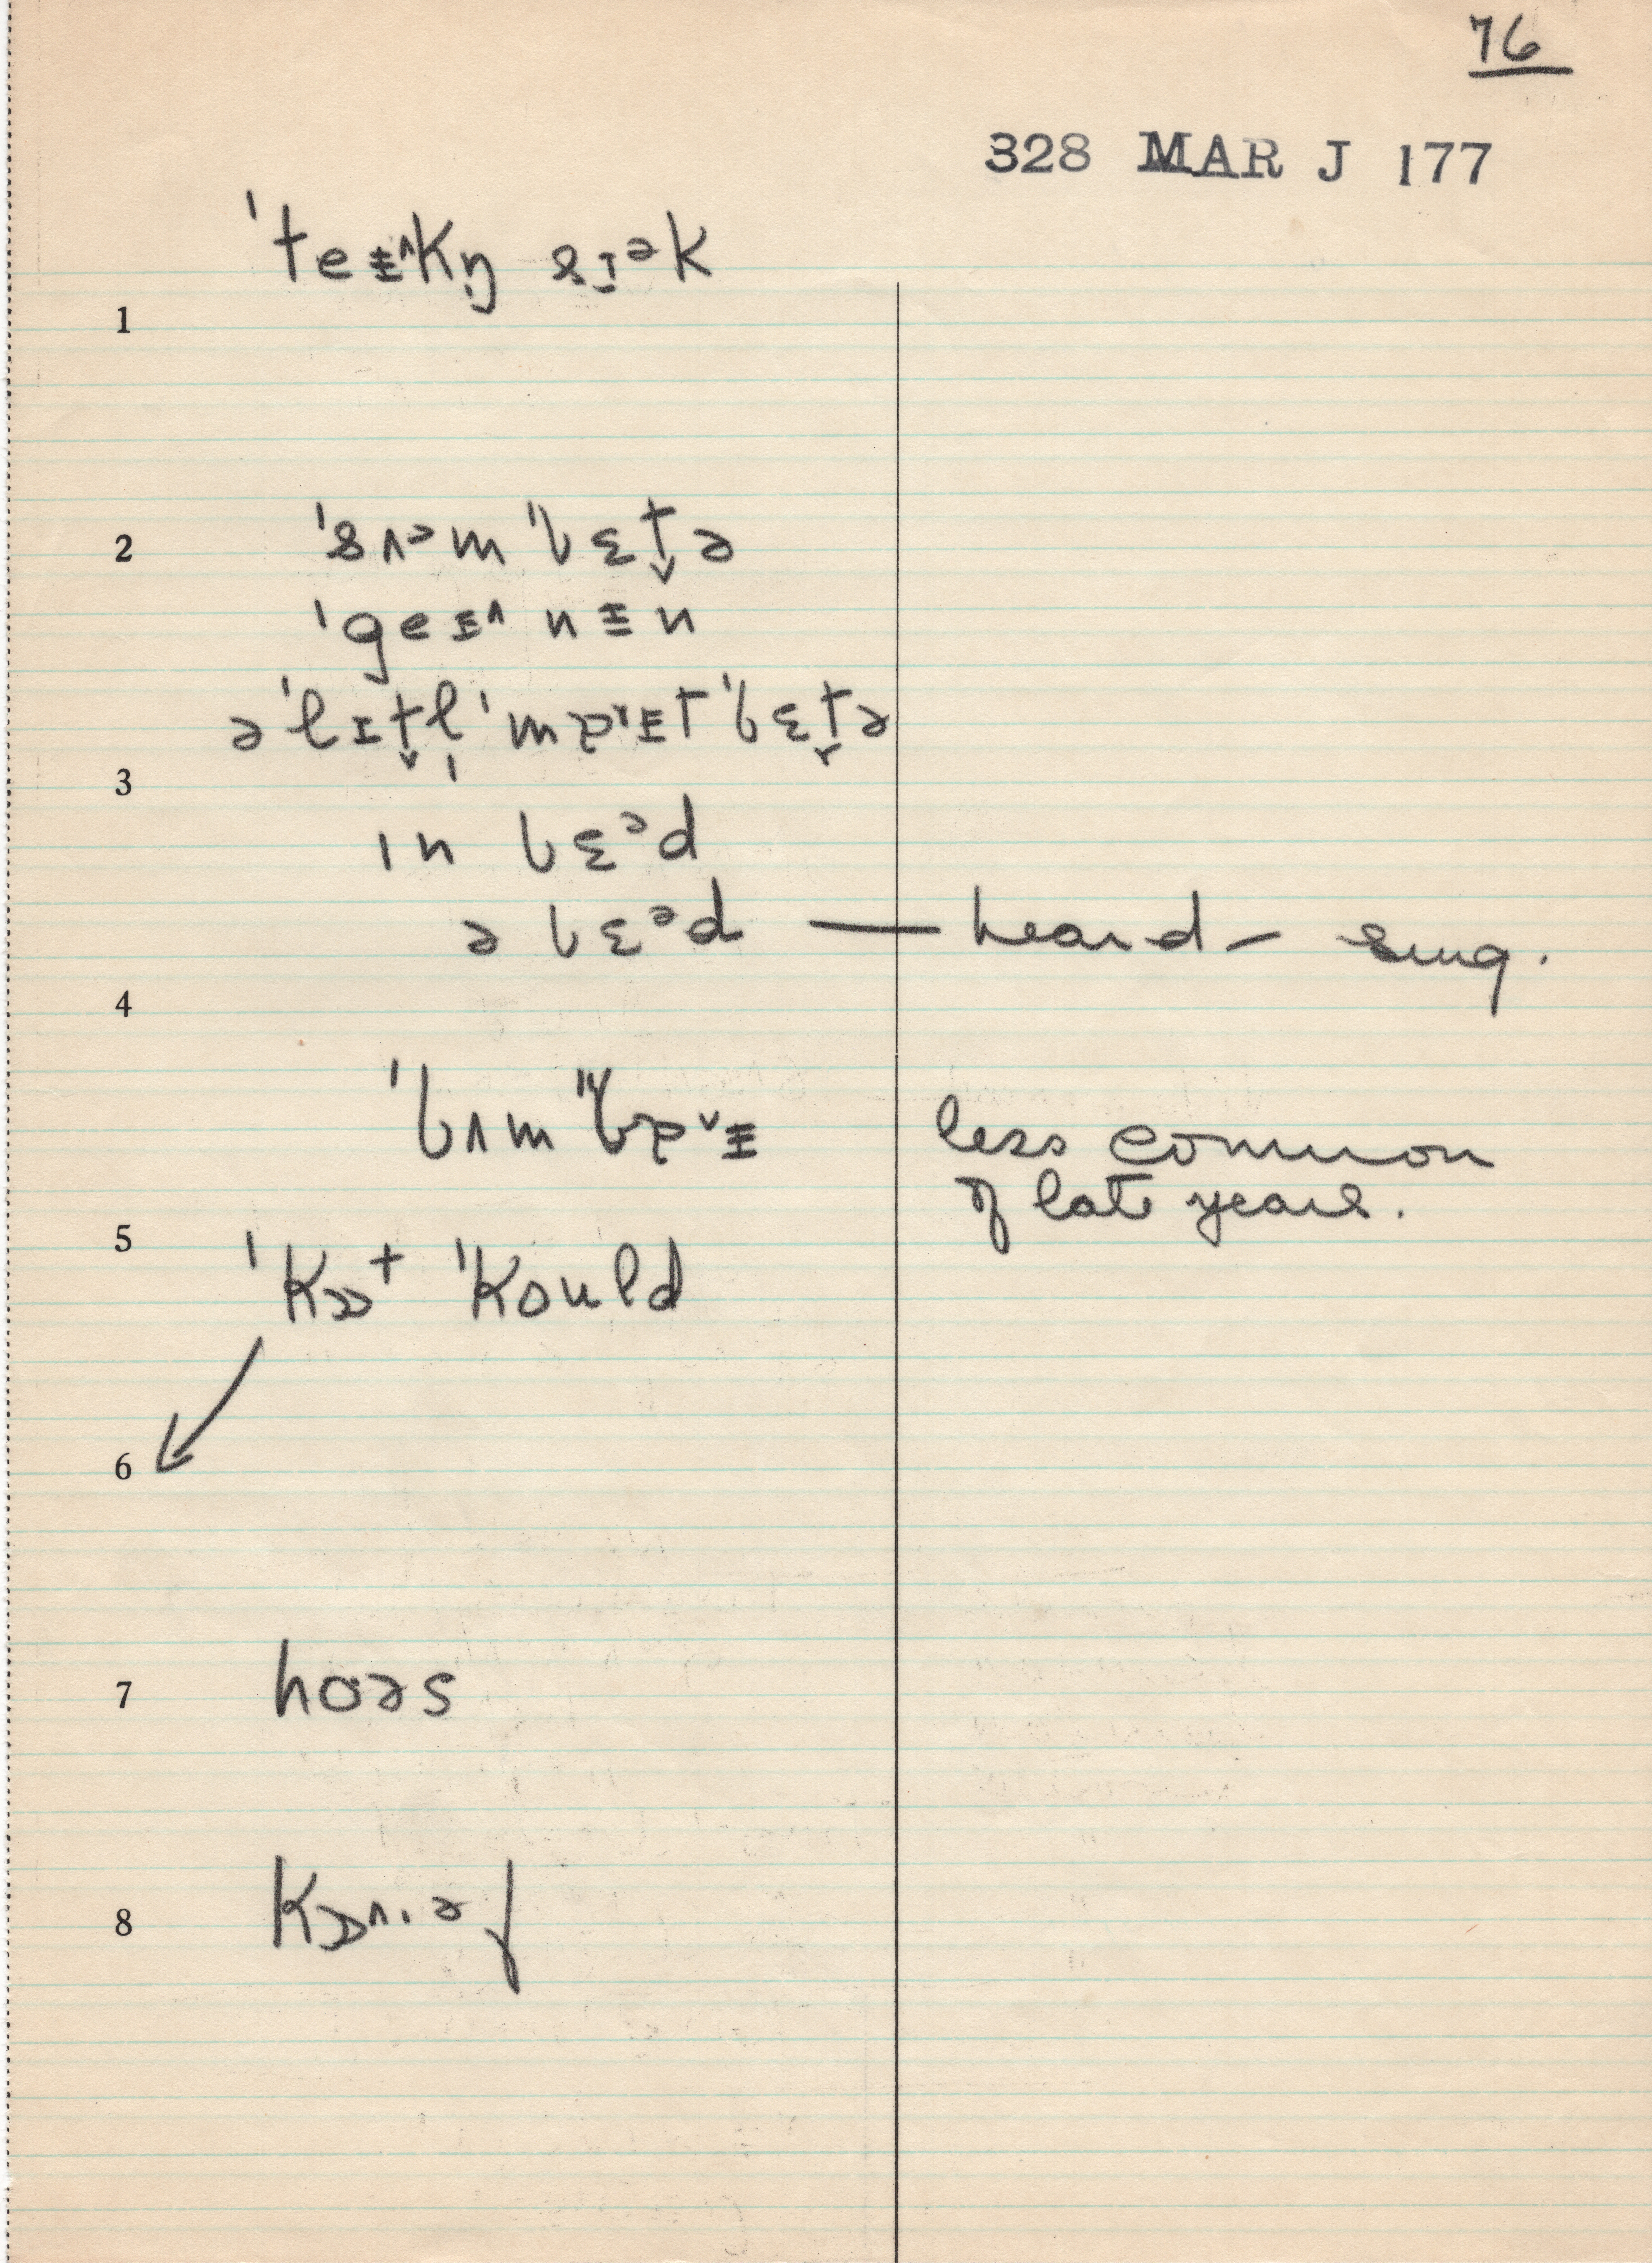 76
328 MAR J 177
ˈteɪ˄kŋ̩ sɪᵊk
1
2 ˈsʌᵊm ˈbɛt̬ə
ˈgeɪ˄nɨn
ə ˈlɪt̬l̩ ˈɪt ˈbɛt̬ə
3
ɪn bɛᵊd
ə bɛᵊd — heard - sing.
4
ˈbʌm less common
of late years.
5
ˈkɔt ˈkould
6
7 hoəs
8 kɒ˄·əf